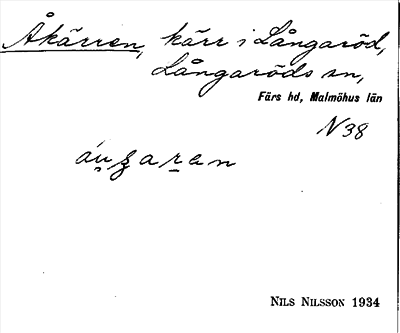 Åkärren, kärr i Långaröd,
Långaröds sn,
Färs hd, Malmöhus län
N38
NILS NILSSON 1934